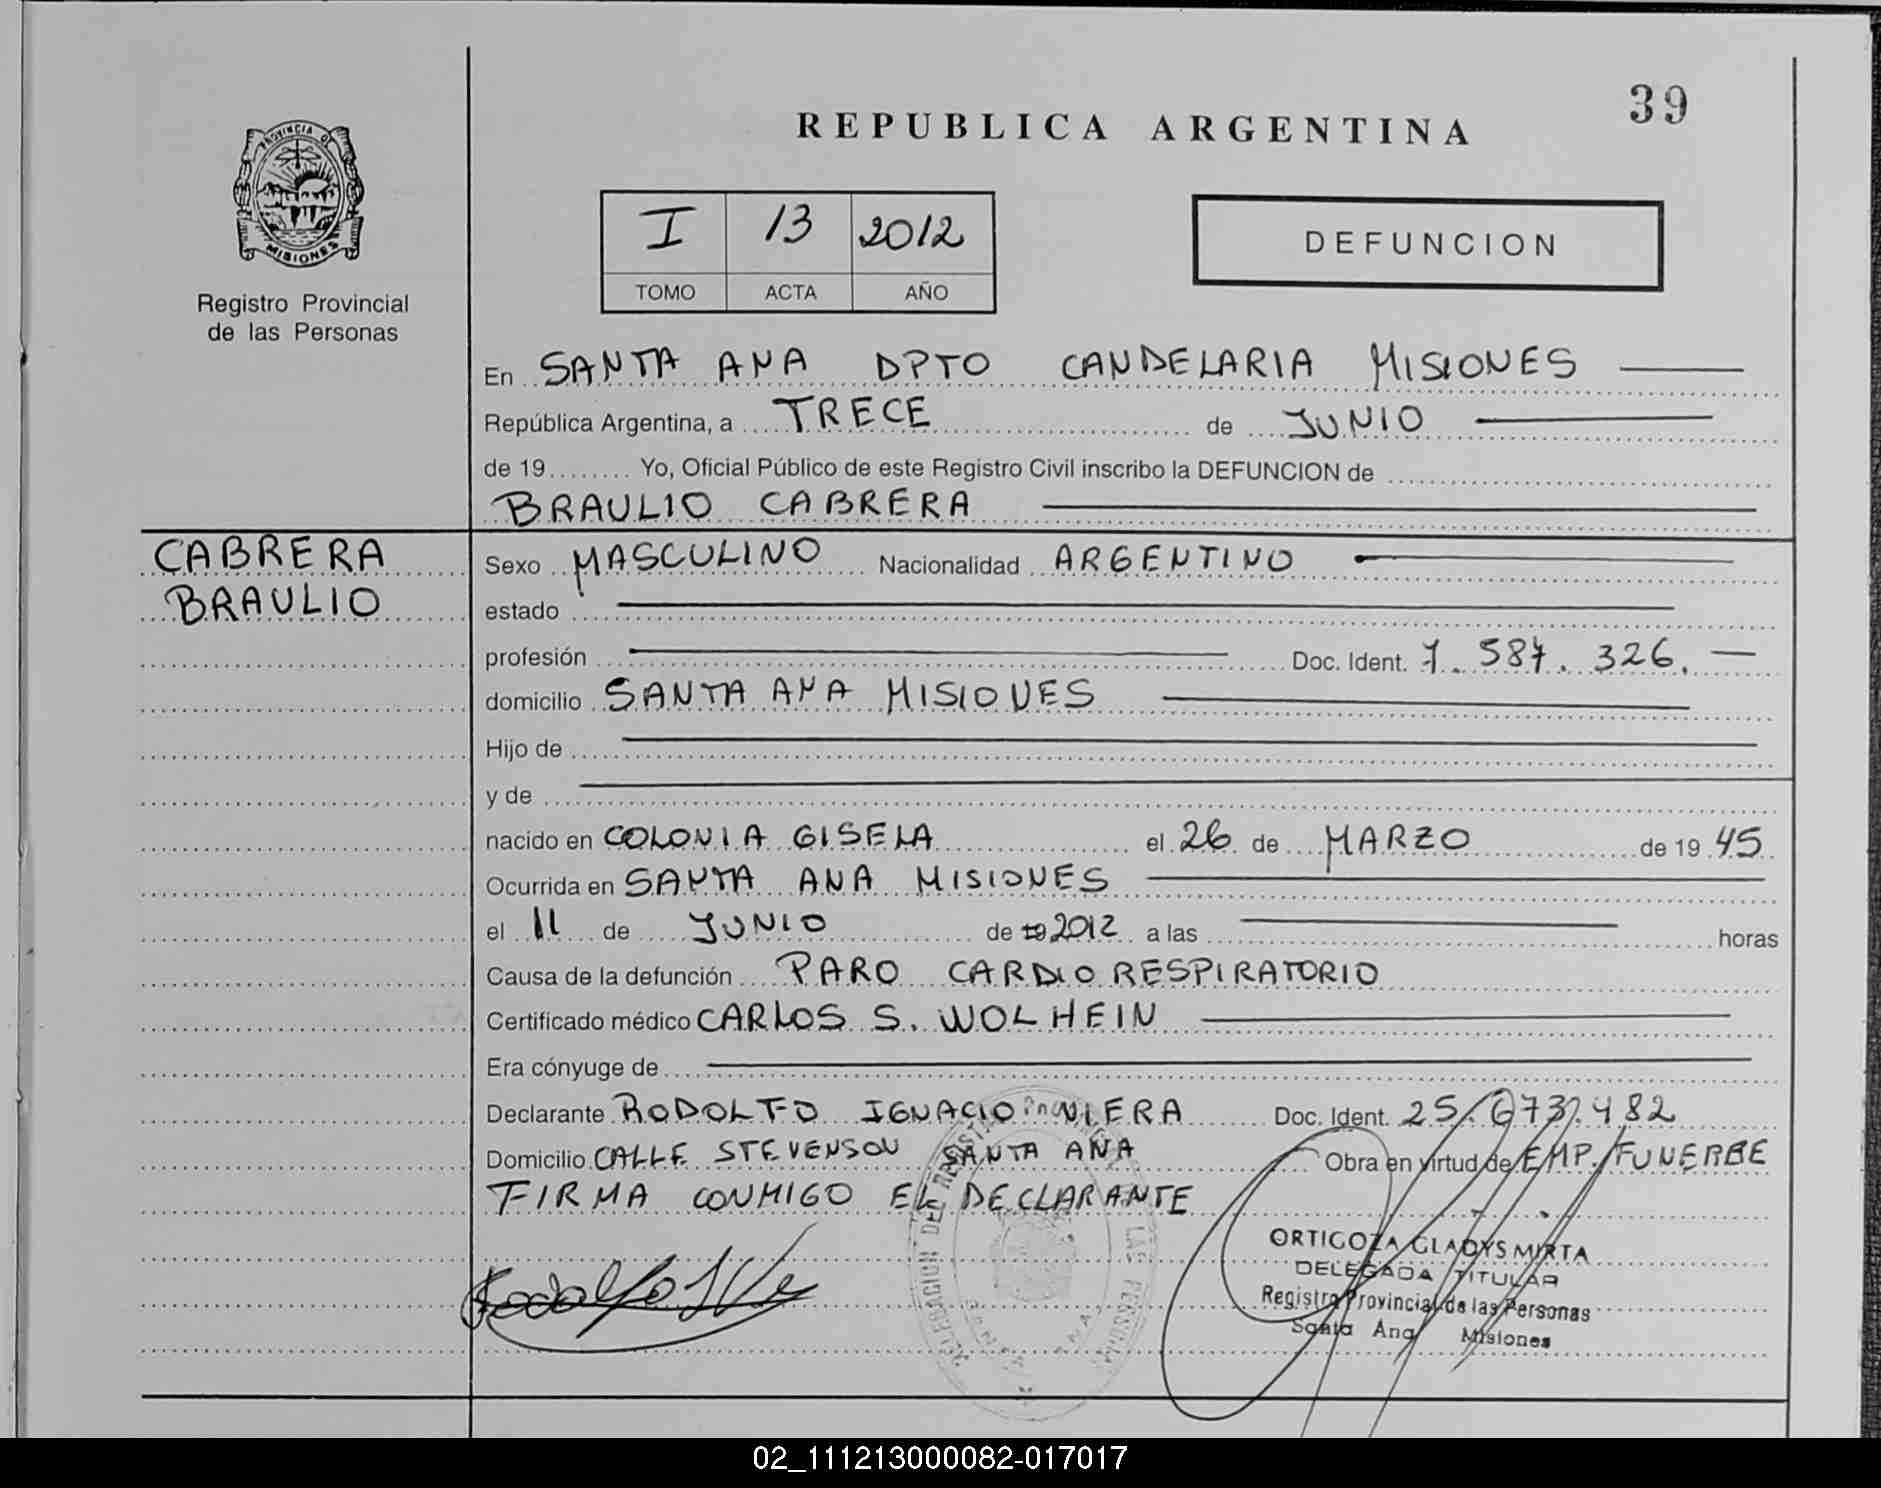 39
REPUBLICA ARGENTINA
PROVINCIA DE
MISIONES
Registro Provincial
de las Personas
I 13 2012
TOMO ACTA AÑO
DEFUNCION
En SANTA ANA DPTO CANDELARIA MISIONES
República Argentina, a TRECE de JUNIO
de 19........ Yo, Oficial Público de este Registro Civil inscribo la DEFUNCION de
BRAULIO CABRERA
CABRERA
BRAULIO
Sexo MASCULINO Nacionalidad ARGENTINO
estado
profesión Doc. Ident. 7.587.326.
domicilio SANTA ANA MISIONES
Hijo de
y de
nacido en COLONIA GISELA el 26 de MARZO de 19 45
Ocurrida en SANTA ANA MISIONES
el 11 de JUNIO de 19 2012 a las horas
Causa de la defunción PARO CARDIO RESPIRATORIO
Certificado médico CARLOS S. WOLHEIN
Era cónyuge de
Declarante RODOLFO IGNACIO VIERA Doc. Ident. 25.673.482
Domicilio CALLE STEVENSON SANTA ANA Obra en virtud de EMP. FUNERBE
FIRMA CONMIGO EL DECLARANTE
ORTIGOZA GLADYS MIRTA
DELEGADA TITULAR
Registro Provincial de las Personas
Santa Ana Misiones
02_111213000082-017017